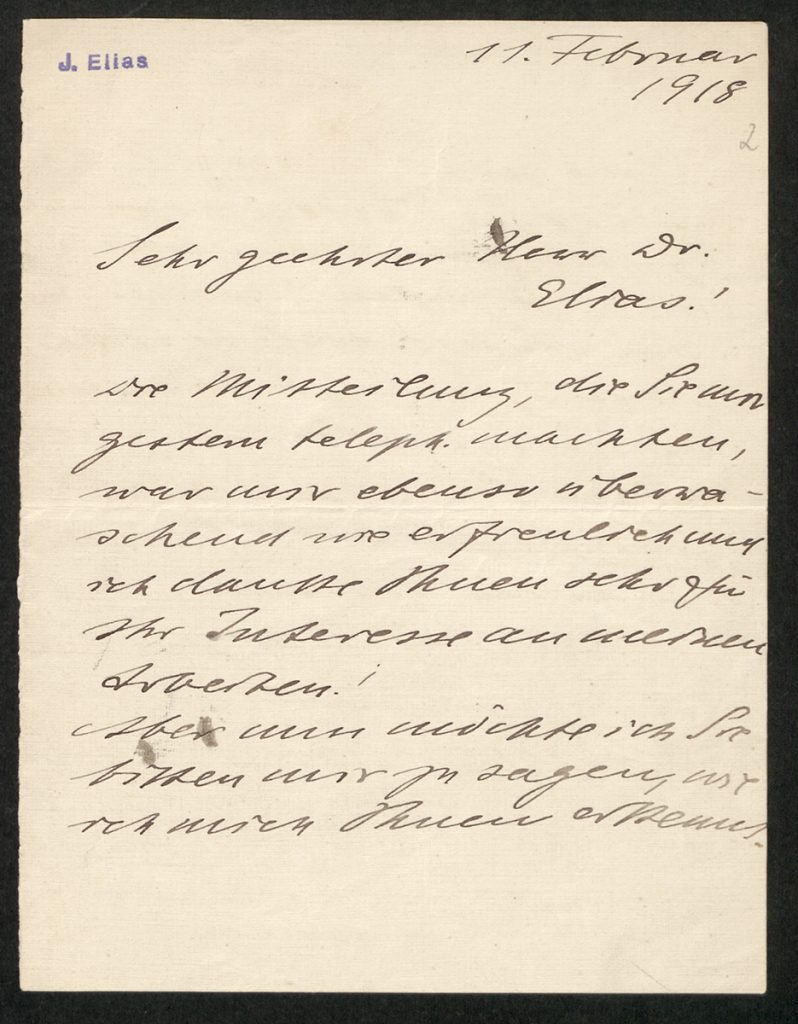 J. Elias
11. Februar
1918
2
Sehr geehrter Herr Dr.
Elias!
Die Mitteilung, die Sie mir
gestern teleph. machten,
war mir ebenso überra-
schend wie erfreulich und
ich danke Ihnen sehr für
Ihr Interesse an meinen
Arbeiten!
Aber nun möchte ich Sie
bitten mir zu sagen, wie
ich mich Ihnen erkennt-